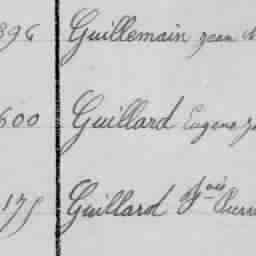 896 Guillemain Jean
600 Guillard Eugène
175 Guillard Fçois Pierre